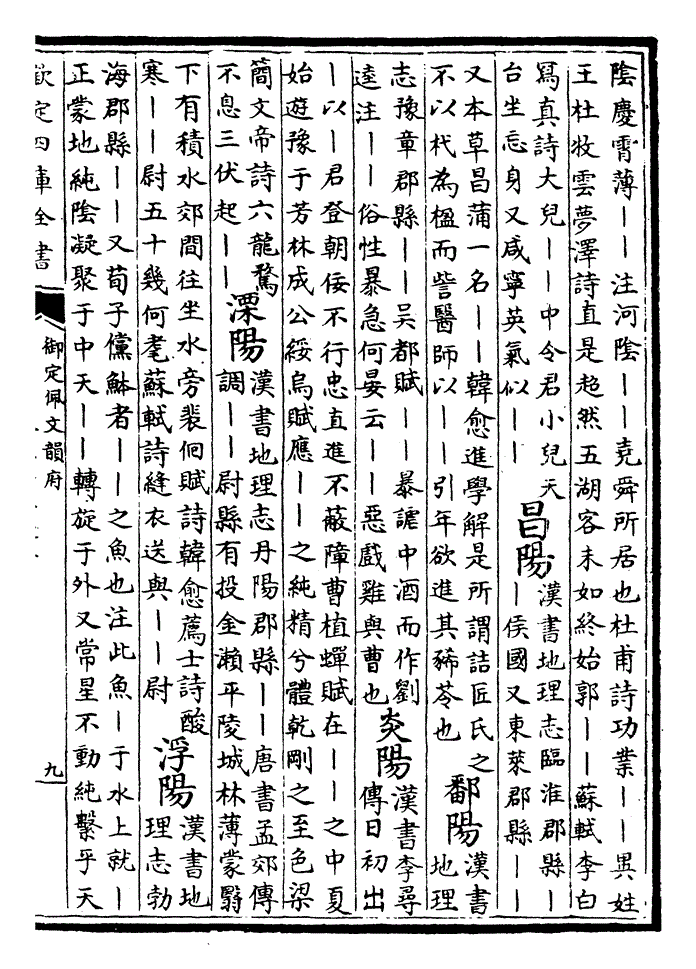 陰慶霄薄——注河陰——堯舜所居也杜甫詩功業——異姓
王杜牧雲夢澤詩直是超然五湖客未如終始郭——蘇軾李白
寫真詩大兒——中令君小兒天
台坐忘身又咸寧英氣似——
昌陽
漢書地理志臨淮郡縣—
—侯國又東萊郡縣——
又本草昌蒲一名——韓愈進學解是所謂詰匠氏之
不以杙為楹而訾醫師以——引年欲進其豨苓也
鄱陽
漢書
地理
志豫章郡縣——吳都賦——暴謔中酒而作劉
逵注——俗性暴急何晏云——惡戲雞與曹也
炎陽
漢書李尋
傳日初出
—以—君登朝佞不行忠直進不蔽障曹植蟬賦在——之中夏
始遊豫于芳林成公綏烏賦應——之純精兮體乾剛之至色梁
簡文帝詩六龍騖
不息三伏起——
溧陽
漢書地理志丹陽郡縣——唐書孟郊傳
調——尉縣有投金瀨平陵城林薄蒙翳
下有積水郊間往坐水旁裴佪賦詩韓愈薦士詩酸
寒——尉五十幾何耄蘇軾詩縫衣送與——尉
浮陽
漢書地
理志勃
海郡縣——又荀子儻者——之魚也注此魚—于水上就—
正蒙地純陰凝聚于中天——轉旋于外又常星不動純繫乎天
欽定四庫全書
御定佩文韻府
九